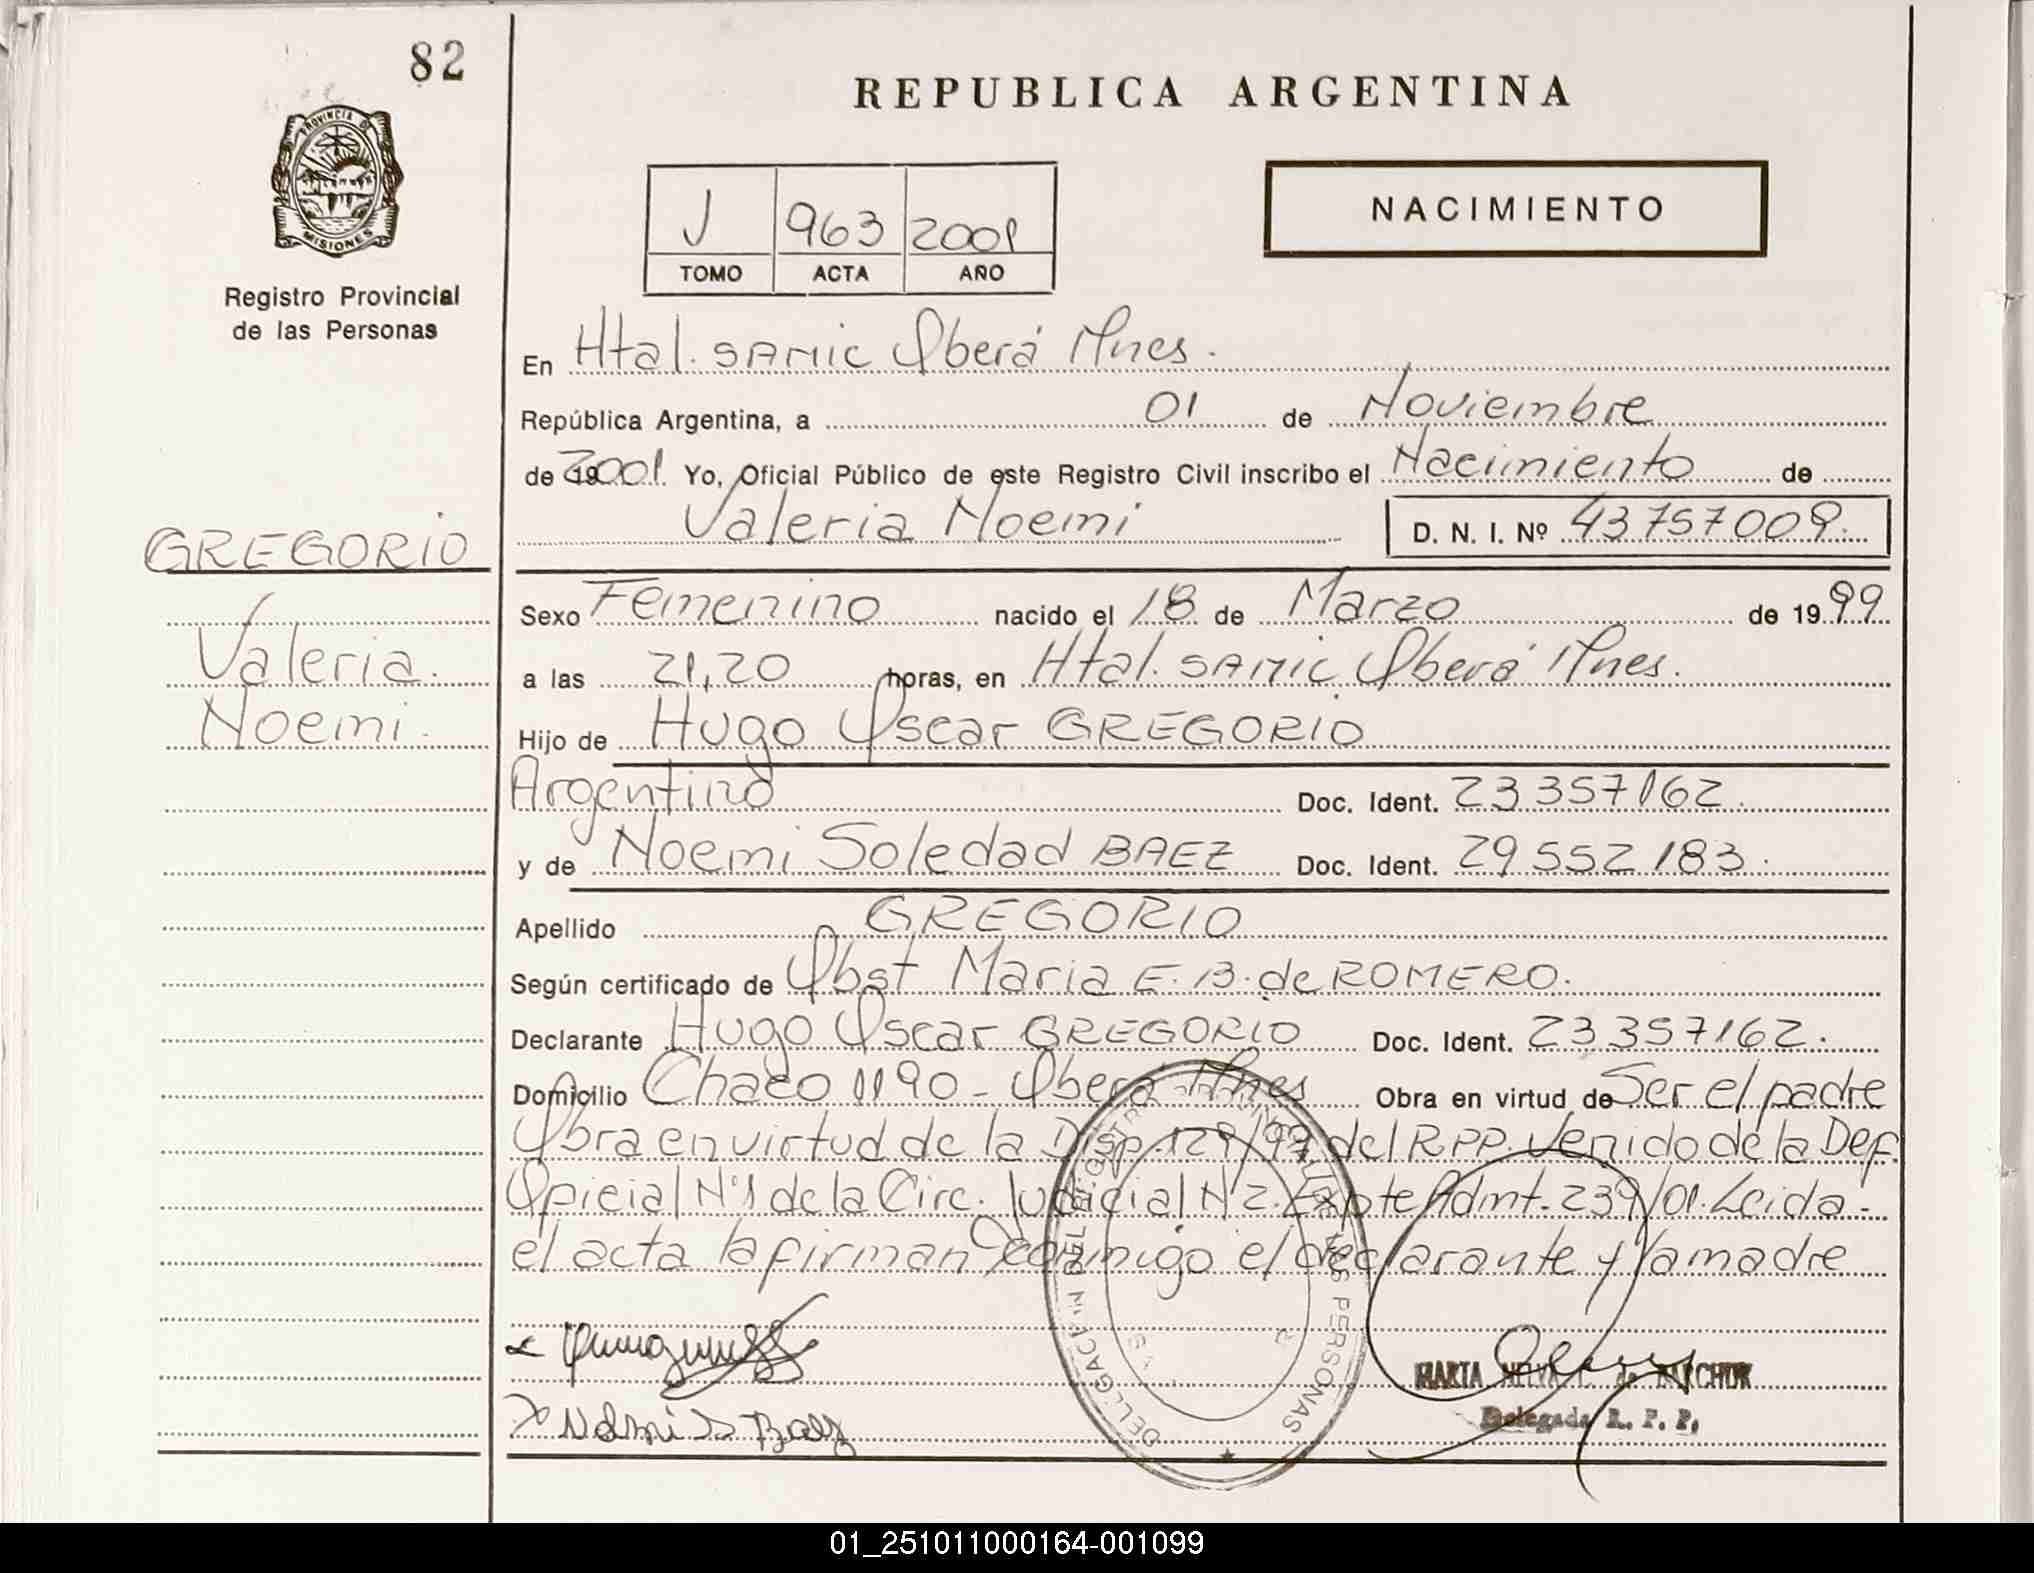 82
REPUBLICA ARGENTINA
PROVINCIA DE
MISIONES
Registro Provincial
de las Personas
J 963 2001
TOMO ACTA AÑO
NACIMIENTO
En Htal. SAMIC Oberá Mnes.
República Argentina, a 01 de Noviembre
de 2001 Yo, Oficial Público de este Registro Civil inscribo el Nacimiento de
Valeria Noemi D. N. I. Nº 43.757.009.
GREGORIO
Valeria
Noemi
Sexo Femenino nacido el 18 de Marzo de 1999
a las 21,20 horas, en Htal. SAMIC Oberá Mnes.
Hijo de Hugo Oscar GREGORIO
Argentino Doc. Ident. 23.357.162
y de Noemi Soledad BAEZ Doc. Ident. 29.552.183.
Apellido GREGORIO
Según certificado de Obst Maria E. B. de ROMERO.
Declarante Hugo Oscar GREGORIO Doc. Ident. 23.357.162.
Domicilio Chaco 1190 - Oberá Mnes Obra en virtud de Ser el padre
Obra en virtud de la Disp. 129/97 del R.P.P. Venido de la Def.
Oficial Nº1 de la Circ. Judicial Nº2. Expte Admt. 239/01. Leida -
el acta la firman conmigo el declarante y la madre
Noemi S Baez
MARIA
Delegada R. P. P.
01_251011000164-001099